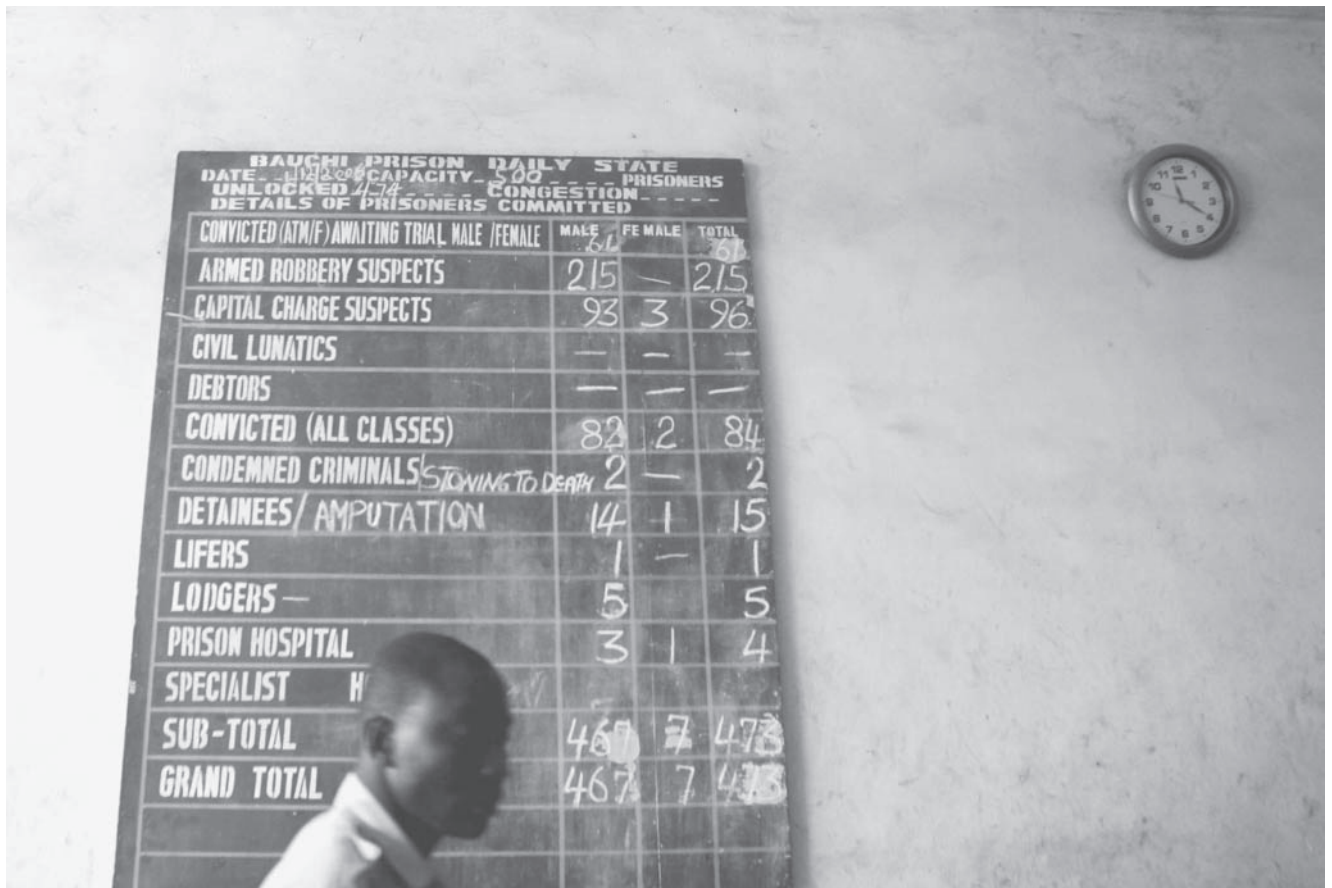 BAUCHI PRISON DAILY STATE
DATE CAPACITY 500 PRISONERS
UNLOCKED 474 CONGESTION
DETAILS OF PRISONERS COMMITTED
CONVICTED (ATM/F) AWAITING TRIAL MALE / FEMALE MALE FEMALE TOTAL
61 61
ARMED ROBBERY SUSPECTS 215 — 215
CAPITAL CHARGE SUSPECTS 93 3 96
CIVIL LUNATICS — — —
DEBTORS — — —
CONVICTED (ALL CLASSES) 82 2 84
CONDEMNED CRIMINALS / STONING TO DEATH 2 — 2
DETAINEES / AMPUTATION 14 1 15
LIFERS 1 — 1
LODGERS — 5 5
PRISON HOSPITAL 3 1 4
SPECIALIST
SUB-TOTAL 467 7 473
GRAND TOTAL 467 7 473
12 1 2 3 4 5 6 7 8 9 10 11